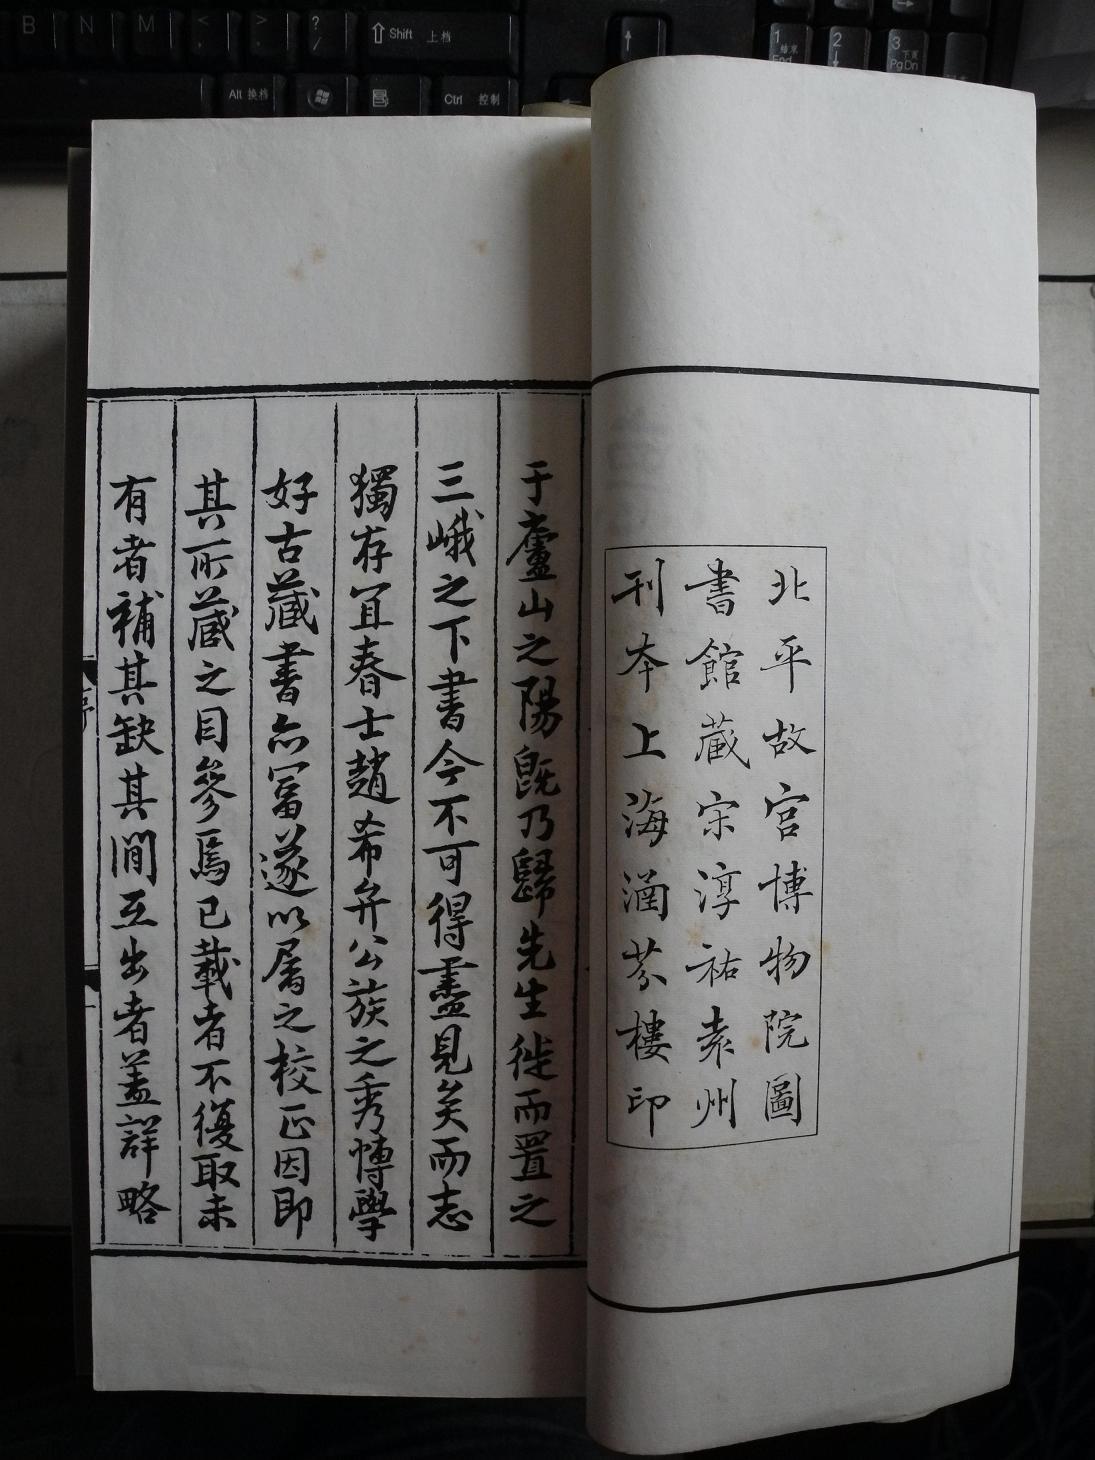 北平故宮博物院圖
書館藏宋淳祐袁州
刊本上海涵芬樓印
于廬山之陽既乃歸先生徙而置之
三峨之下書今不可得盡見矣而志
獨存宜春士趙希弁公族之秀博學
好古藏書亦富遂以屬之校正因即
其所藏之目參焉已載者不復取未
有者補其缺其間互出者蓋詳略
序
B N M < , > . ? / ⇧ Shift 上档 ↑ 1 结束 End 2 ↓ 3 下页 PgDn
Alt 换档 Ctrl 控制